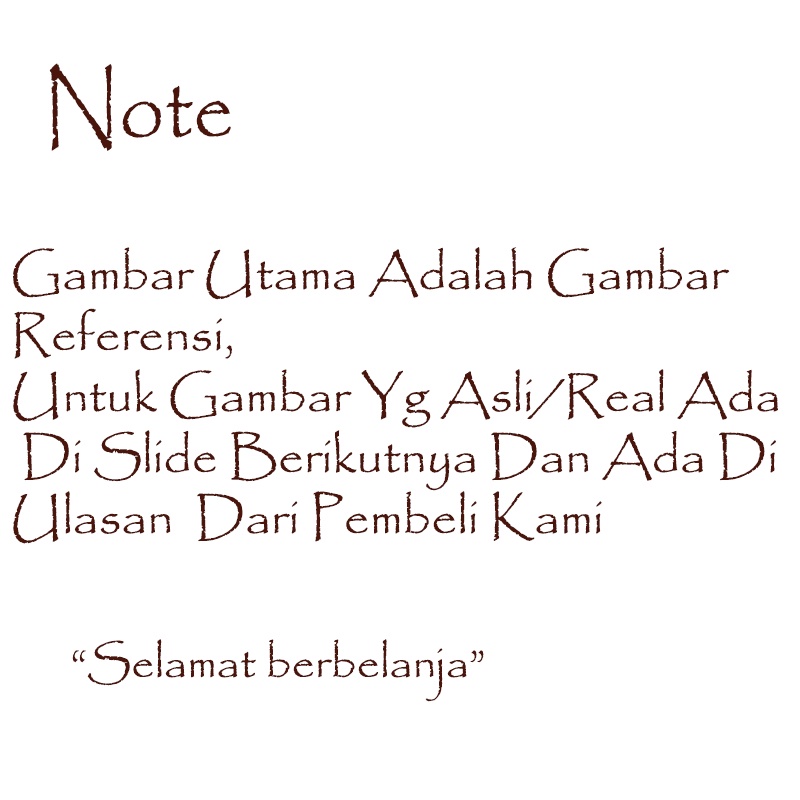 Note
Gambar Utama Adalah Gambar
Referensi,
Untuk Gambar Yg Asli/Real Ada
Di Slide Berikutnya Dan Ada Di
Ulasan Dari Pembeli Kami
“Selamat berbelanja”